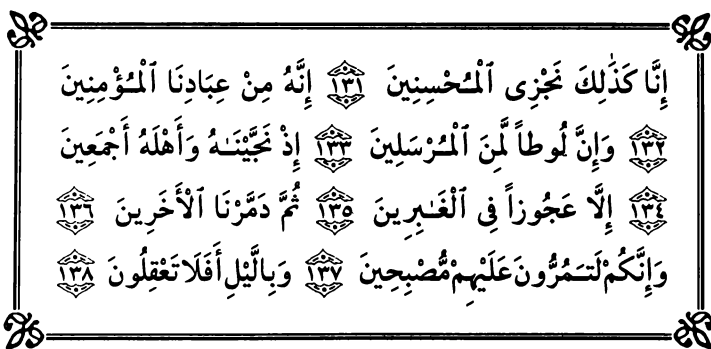 إِنَّا كَذَٰلِكَ نَجْزِى ٱلْمُحْسِنِينَ ١٣١ إِنَّهُ مِنْ عِبَادِنَا ٱلْمُؤْمِنِينَ
١٣٢ وَإِنَّ لُوطاً لَّمِنَ ٱلْمُرْسَلِينَ ١٣٣ إِذْ نَجَّيْنَـٰهُ وَأَهْلَهُ أَجْمَعِينَ
١٣٤ إِلَّا عَجُوزاً فِى ٱلْغَـٰبِرِينَ ١٣٥ ثُمَّ دَمَّرْنَا ٱلْأَخَرِينَ ١٣٦
وَإِنَّكُمْ لَتَمُرُّونَ عَلَيْهِمْ مُّصْبِحِينَ ١٣٧ وَبِالَّيْلِ أَفَلَا تَعْقِلُونَ ١٣٨